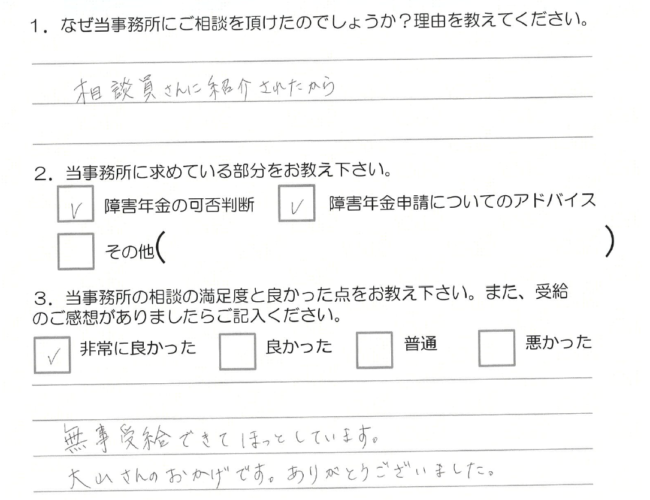 1．なぜ当事務所にご相談を頂けたのでしょうか？理由を教えてください。
相談員さんに紹介されたから
2．当事務所に求めている部分をお教え下さい。
障害年金の可否判断 障害年金申請についてのアドバイス
その他( )
3．当事務所の相談の満足度と良かった点をお教え下さい。また、受給
のご感想がありましたらご記入ください。
非常に良かった 良かった 普通 悪かった
無事受給できてほっとしています。
大山さんのおかげです。ありがとうございました。